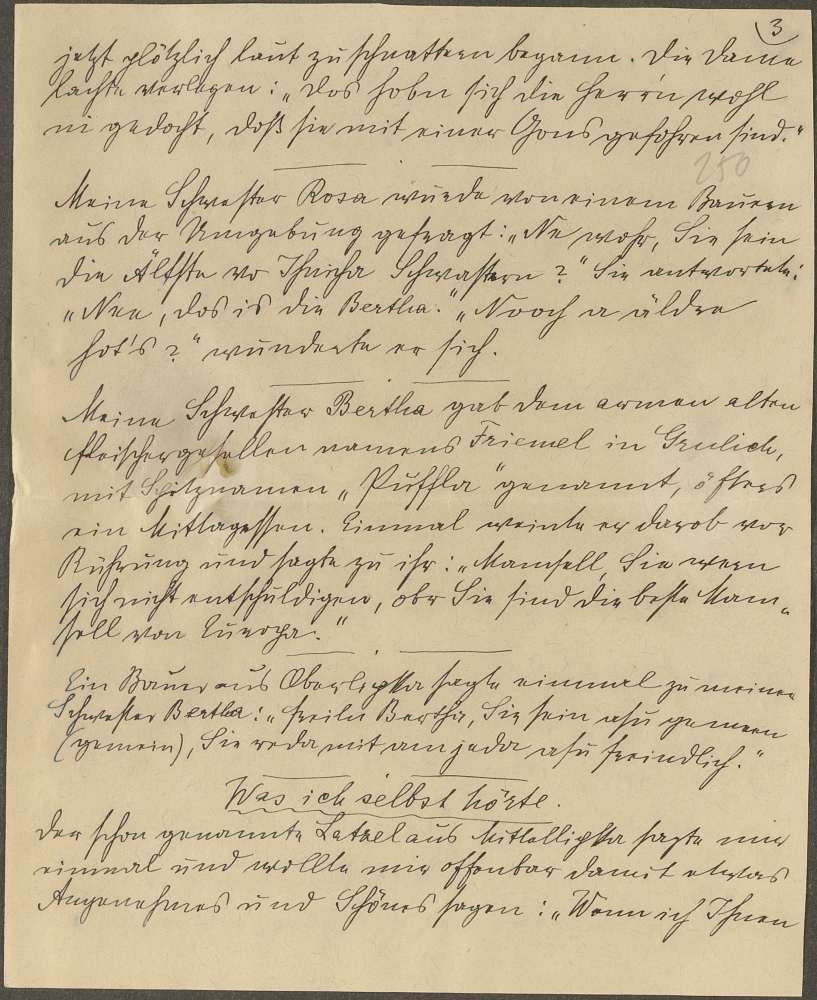 3
jetzt plötzlich laut zu schnattern begann. Die Dame
lachte verlegen: „Dos hobn sich die Herrn wohl
ni gedocht, doß sie mit einer Gons gefohren sind."
250
Meine Schwester Rosa wurde von einem Bauern
aus der Umgebung gefragt: „Ne wohr, Sie sein
die Älfste vo Ihnicha Schwastern?" Sie antwortete:
„Nee, dos is die Bertha." „Nooch a äldre
hot's?" wunderte er sich.
Meine Schwester Bertha gab dem armen alten
Fleischergesellen namens Friemel in Grulich,
mit Spitznamen „Puffla" genannt, öfters
ein Mittagessen. Einmal weinte er darob vor
Rührung und sagte zu ihr: „Mamsell, Sie wern
sich nicht entschuldigen, obr Sie sind die beste Mam„
sell von Europa."
Ein Bauer aus Oberlipka sagte einmal zu meiner
Schwester Bertha: „Freiln Bertha, Sie sein asu gemeen
(gemein), Sie reda mit am jeda asu freindlich."
Was ich selbst hörte.
Der schon genannte Latzel aus Mittellipka sagte mir
einmal und wollte mir offenbar damit etwas
Angenehmes und Schönes sagen: „Wenn ich Ihnen